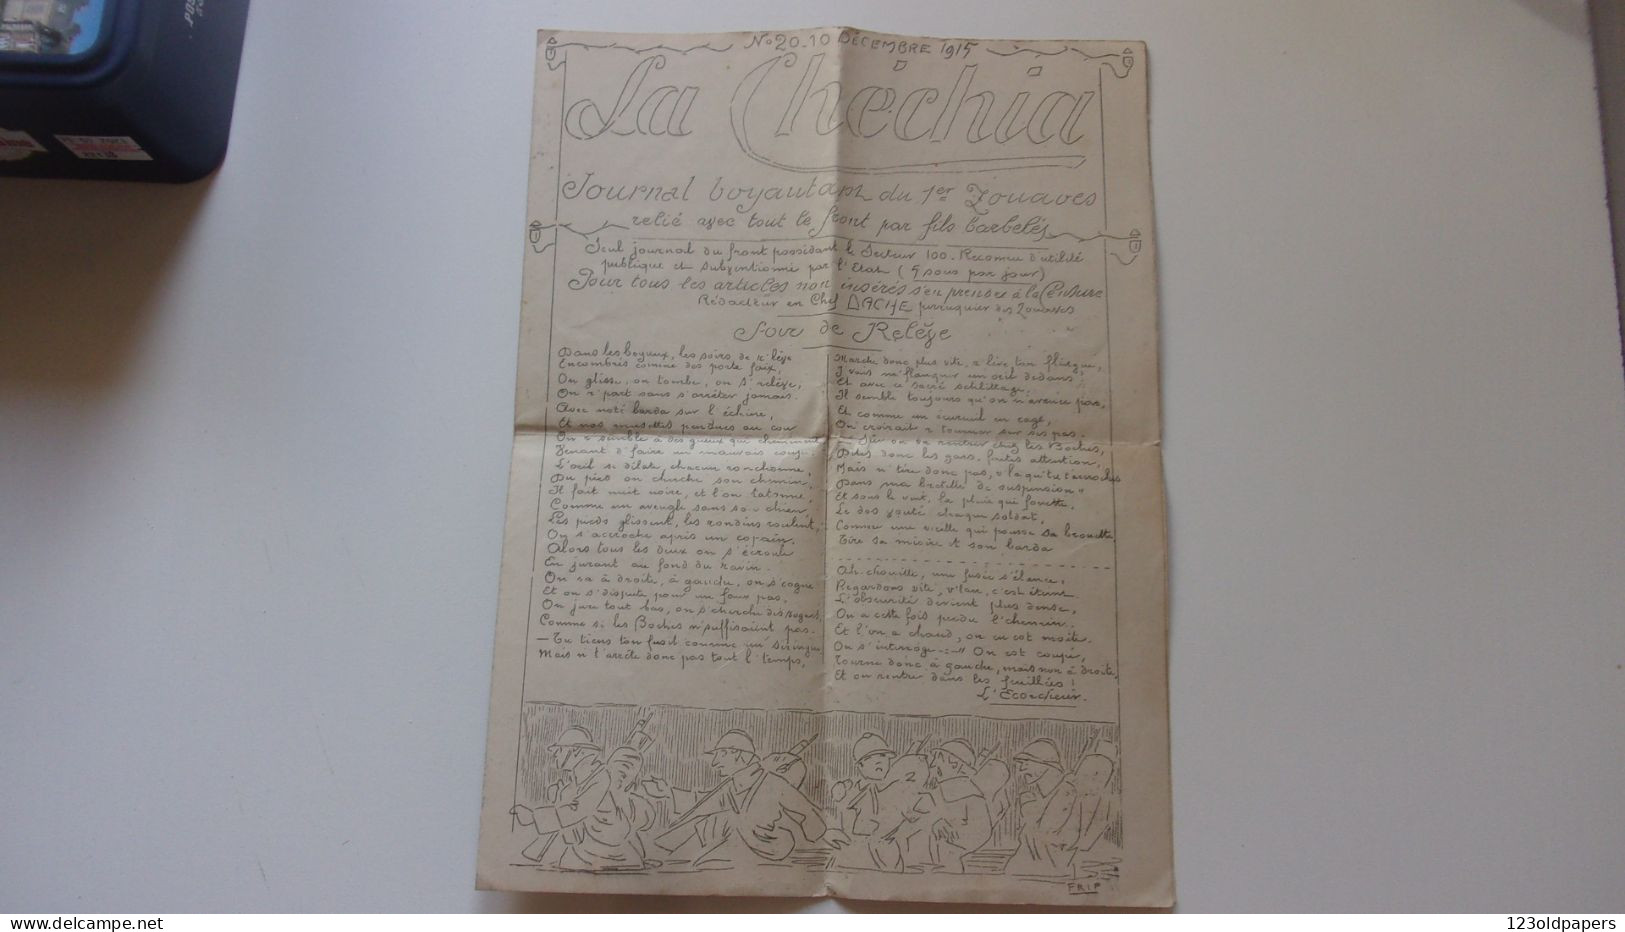 No 20 - 10 DÉCEMBRE 1915
La Chéchia
Journal boyautant du 1er Zouaves
relié avec tout le front par fils barbelés
Seul journal du front possédant le Secteur 100. Reconnu d'utilité
publique et subventionné par l'Etat (5 sous par jour)
Pour tous les articles non insérés s'en prendre à la Censure
Rédacteur en Chef DACHE perruquier des Zouaves
Soir de Relève
Dans les boyaux, les soirs de r'lève
Encombrés comme des porte faix,
On glisse, on tombe, on s'relève,
On r'part sans s'arrêter jamais.
Avec noté barda sur l'échine,
Et nos musettes pendues au cou
On r'semble à des gueux qui cheminent
Venant d'faire un mauvais coup.
L'œil se dilate, chacun ronchonne,
Du pied on cherche son chemin,
Il fait nuit noire, et l'on tatonne,
Comme un aveugle sans son chien,
Les pieds glissent, les rondins roulent,
On s'accroche après un copain,
Alors tous les deux on s'écroule
En jurant au fond du ravin.
On va à droite, à gauche, on s'cogne
Et on s'dispute pour un faux pas,
On jure tout bas, on s'cherche des rognes,
Comme si les Boches n'suffisaient pas.
— Tu tiens ton fusil comme un' s'ringue
Mais n't'arrête donc pas tout l'temps,
Marche donc plus vite, r'lève ton flingue,
J'vais m'flanquer un œil dedans,
Et avec ce sacré schlittage,
Il semble toujours qu'on n'avance pas,
Et comme un écureuil en cage,
On croirait r'tourner sur ses pas.
— on va rentrer chez les Boches,
Dites donc les gars, faites attention,
Mais n'tire donc pas, v'la qu'tu t'accroches
Dans ma bretelle de suspension"
Et sous le vent, la pluie qui fouette,
Le dos vouté chaque soldat,
Comme une vieille qui pousse sa brouette
Tire sa misère et son barda
Ah. chouette, une fusée s'élance,
Regardons vite, v'lan, c'est éteint
L'obscurité devient plus dense,
On a cette fois perdu l'chemin.
Et l'on a chaud, on est moite.
On s'interroge -:-" On est coupé,
Tourne donc à gauche, mais non à droite,
Et on rentre dans les feuillées!
L'Ecorcheur.
2
FRIP
123oldpapers